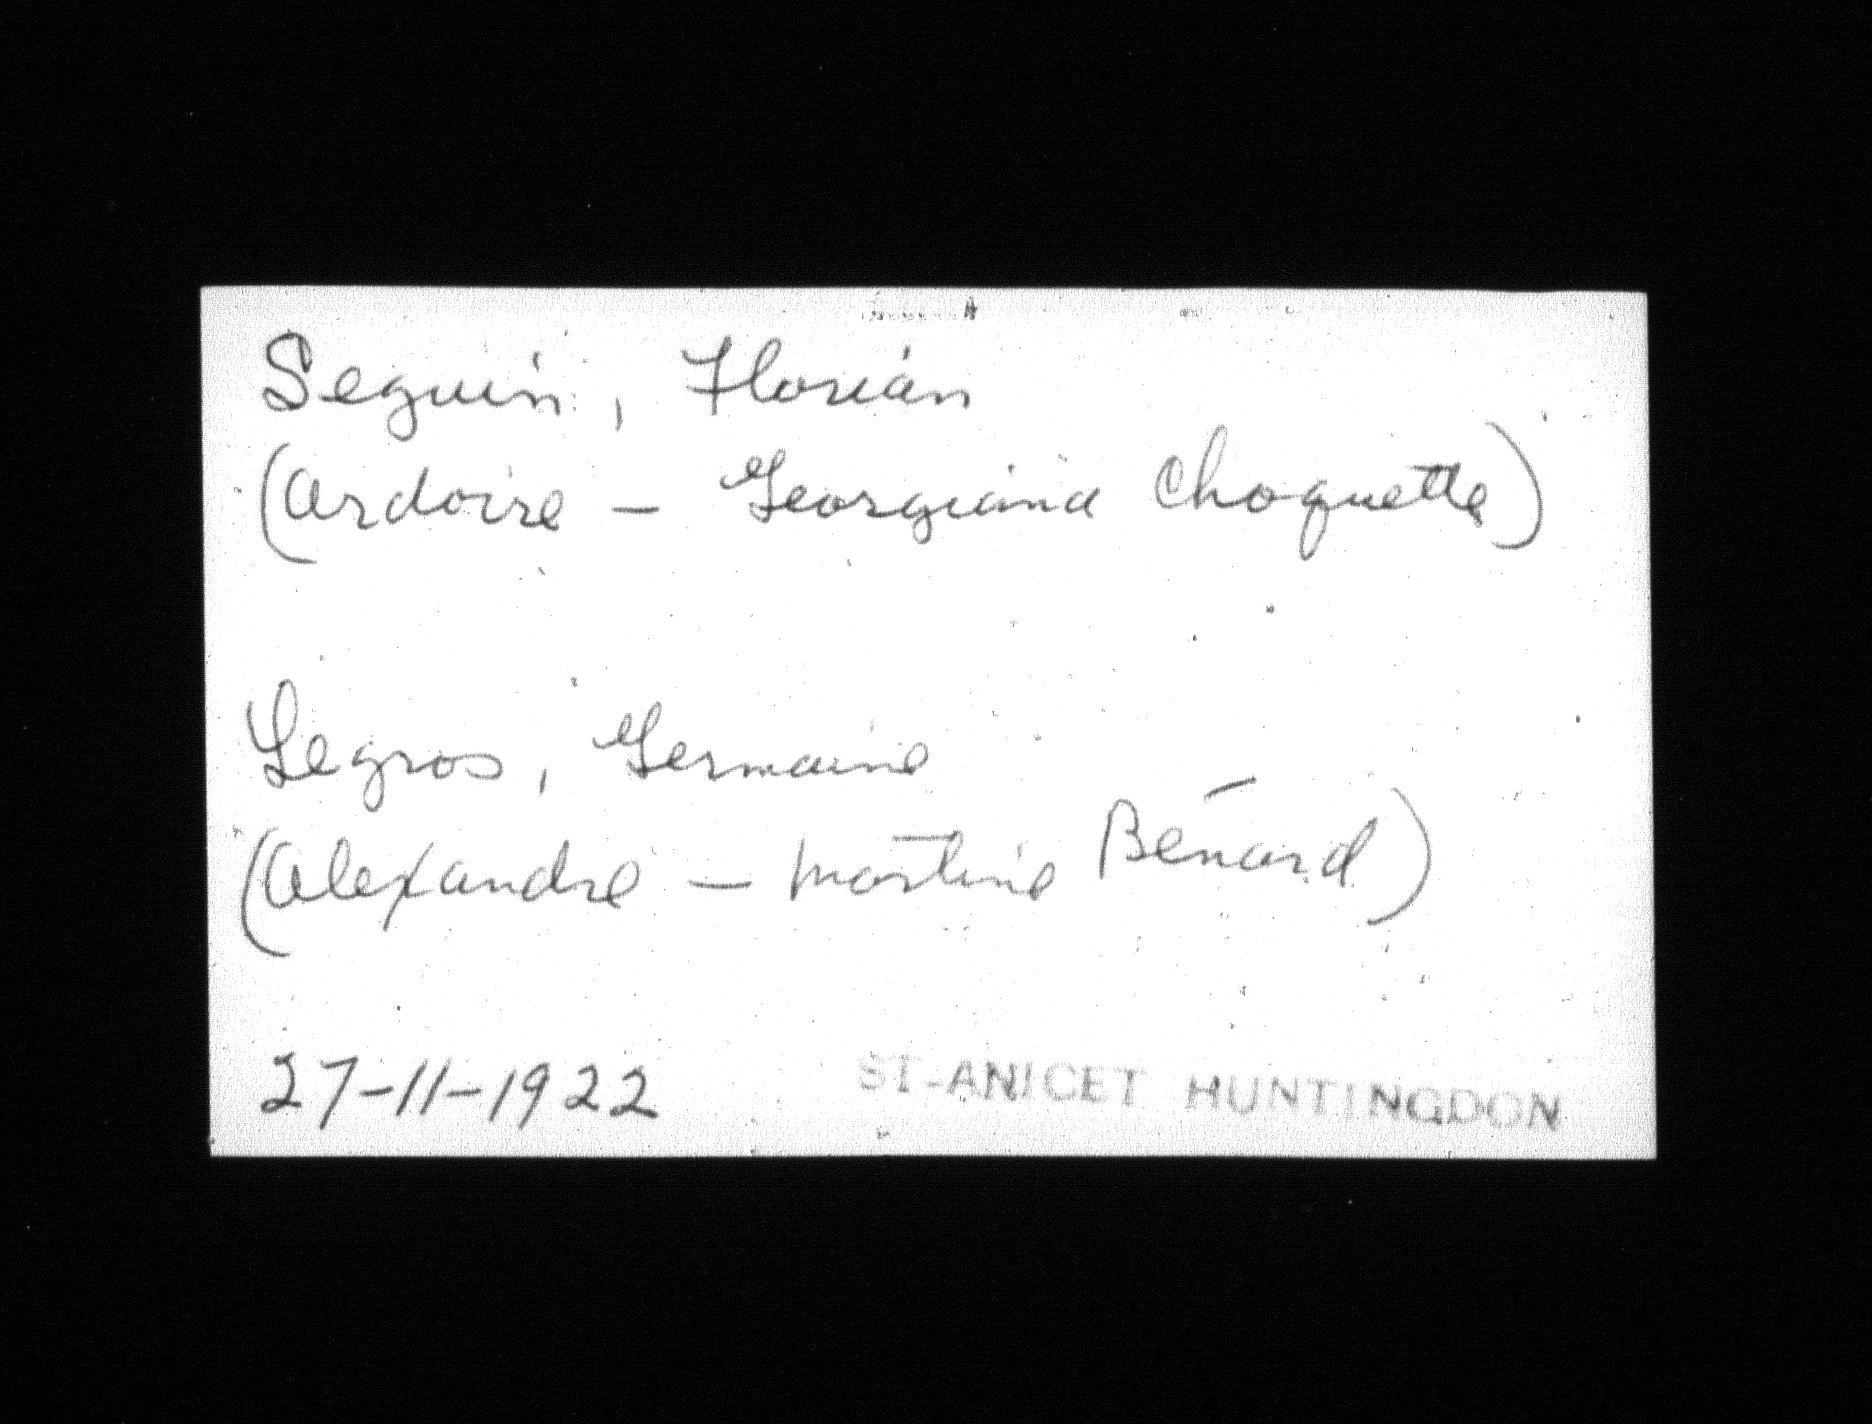 Seguin, Florian
(Ardoire - Georgiana Choquette)
Legros, Germaine
(Alexandre - Martine Bénard)
27-11-1922 ST-ANICET HUNTINGDON